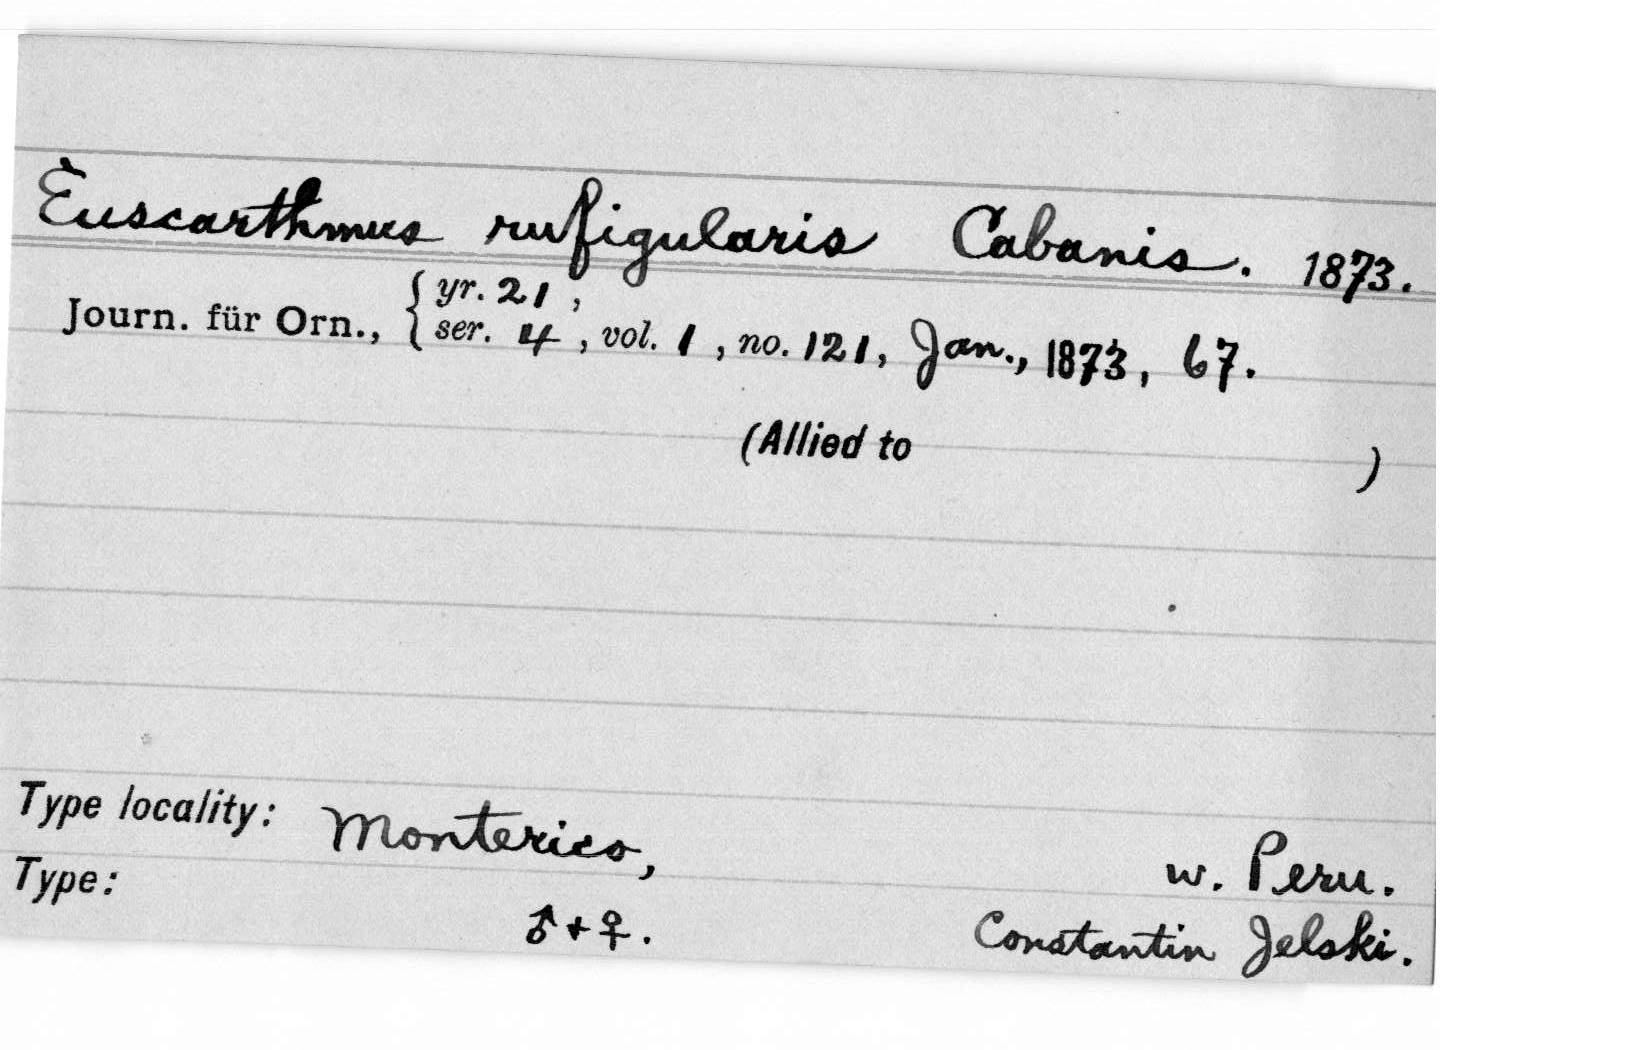 Èuscarthmus rufigularis Cabanis. 1873.
Journ. für Orn., { yr. 21 ,
ser. 4 , vol. 1 , no. 121, Jan., 1873, 67.
(Allied to )
Type locality: Monterico, w. Peru.
Type: ♂ + ♀. Constantin Jelski.